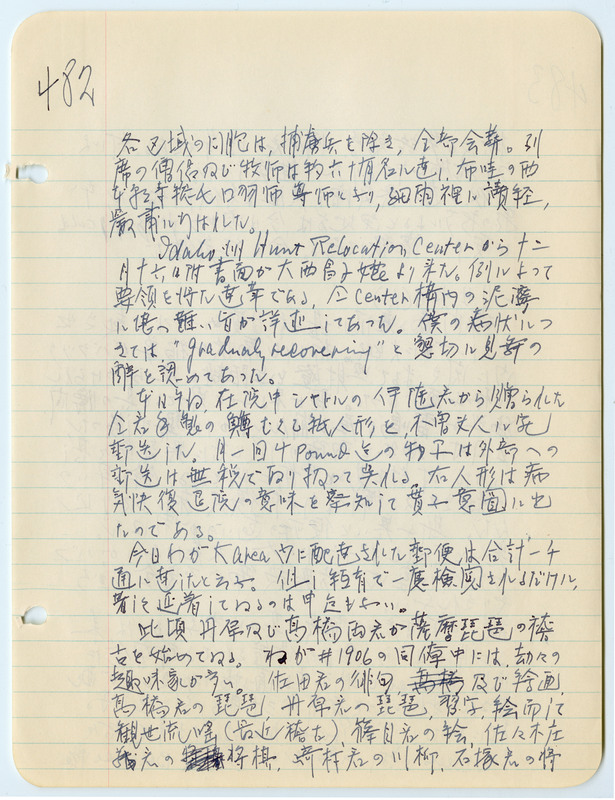 482
各区域の同胞は、捕虜兵を除き、全部会葬。列
席の僧侶及び牧師は約六十有名に達し、布哇の西
本願寺 羽師導師となり、細雨裡に讀経、
厳粛に行はれた。
Idaho 州 Hunt Relocation Centerから十二
月十六日附書面が大西昌子嬢より来た。例によって
要領を得た達筆である。仝center構内の泥濘
に堪へ難い旨が詳述してあった。僕の病状につ
きては "gradualy recovering" と懇切に見舞の
辞を認めてあった。
本日予ね在院中シャトルの伊 君から贈られた
仝君手製の 紙人形を、木曽夫人に宛
郵送した。月一回4 pound迄の物品は外部への
郵送は無税で取り扱って呉れる。右人形は病
気快復退院の意味を察知して貰ふ意圖に出
たのである。
今日わがK area内に配達された郵便は合計一千
通に達したと云ふ。但し短首で一應検閲されるだけに、
着を延着してゐるのは申迄もない。
此頃丹保及び髙橋両君が薩摩琵琶の稽
古を始めてゐる。わが#1906の同僚中には、却々の
趣味家が多い。佐田君の俳句、及び絵画、
髙橋君の琵琶、丹保君の琵琶、習字、絵而して
観世流謡(最近稽古)、篠目君の絵、佐々木庄
君の 将棋、﨑村君の川柳、石塚君の将